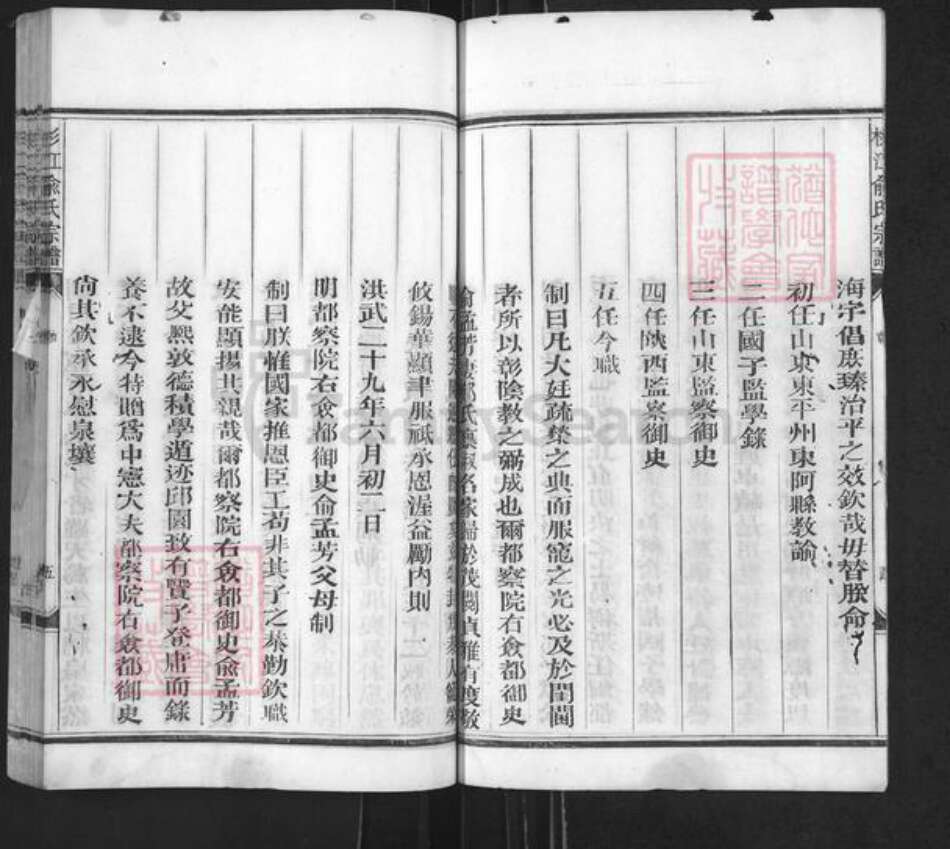 海宇倡庶臻治平之效欽哉毋替朕命
初任山東東平州東阿縣教諭
二任國子監學錄
三任山東監察御史
四任陝西監察御史
五任今職
制曰凡大廷疏榮之典而服寵之光必及於閨閫
者所以彰陰教之弼成也爾都察院右僉都御史
俞孟芳妻鄒氏 名家歸於茂閥貞雅有度
攸錫華顯聿服祇承恩渥益勵內則
洪武二十九年六月初二日
明都察院右僉都御史俞孟芳父母制
制曰朕惟國家推恩臣工苟非其子之恭勤欽職
安能顯揚其親哉爾都察院右僉都御史俞孟芳
故父熙敦德積學遁迹邱園致有賢子登庸而祿
養不逮今特贈爲中憲大夫都察院右僉都御史
尙其欽承永慰泉壤
江俞氏宗譜
五
江俞氏宗譜
譜學會
收藏
FamilySearch